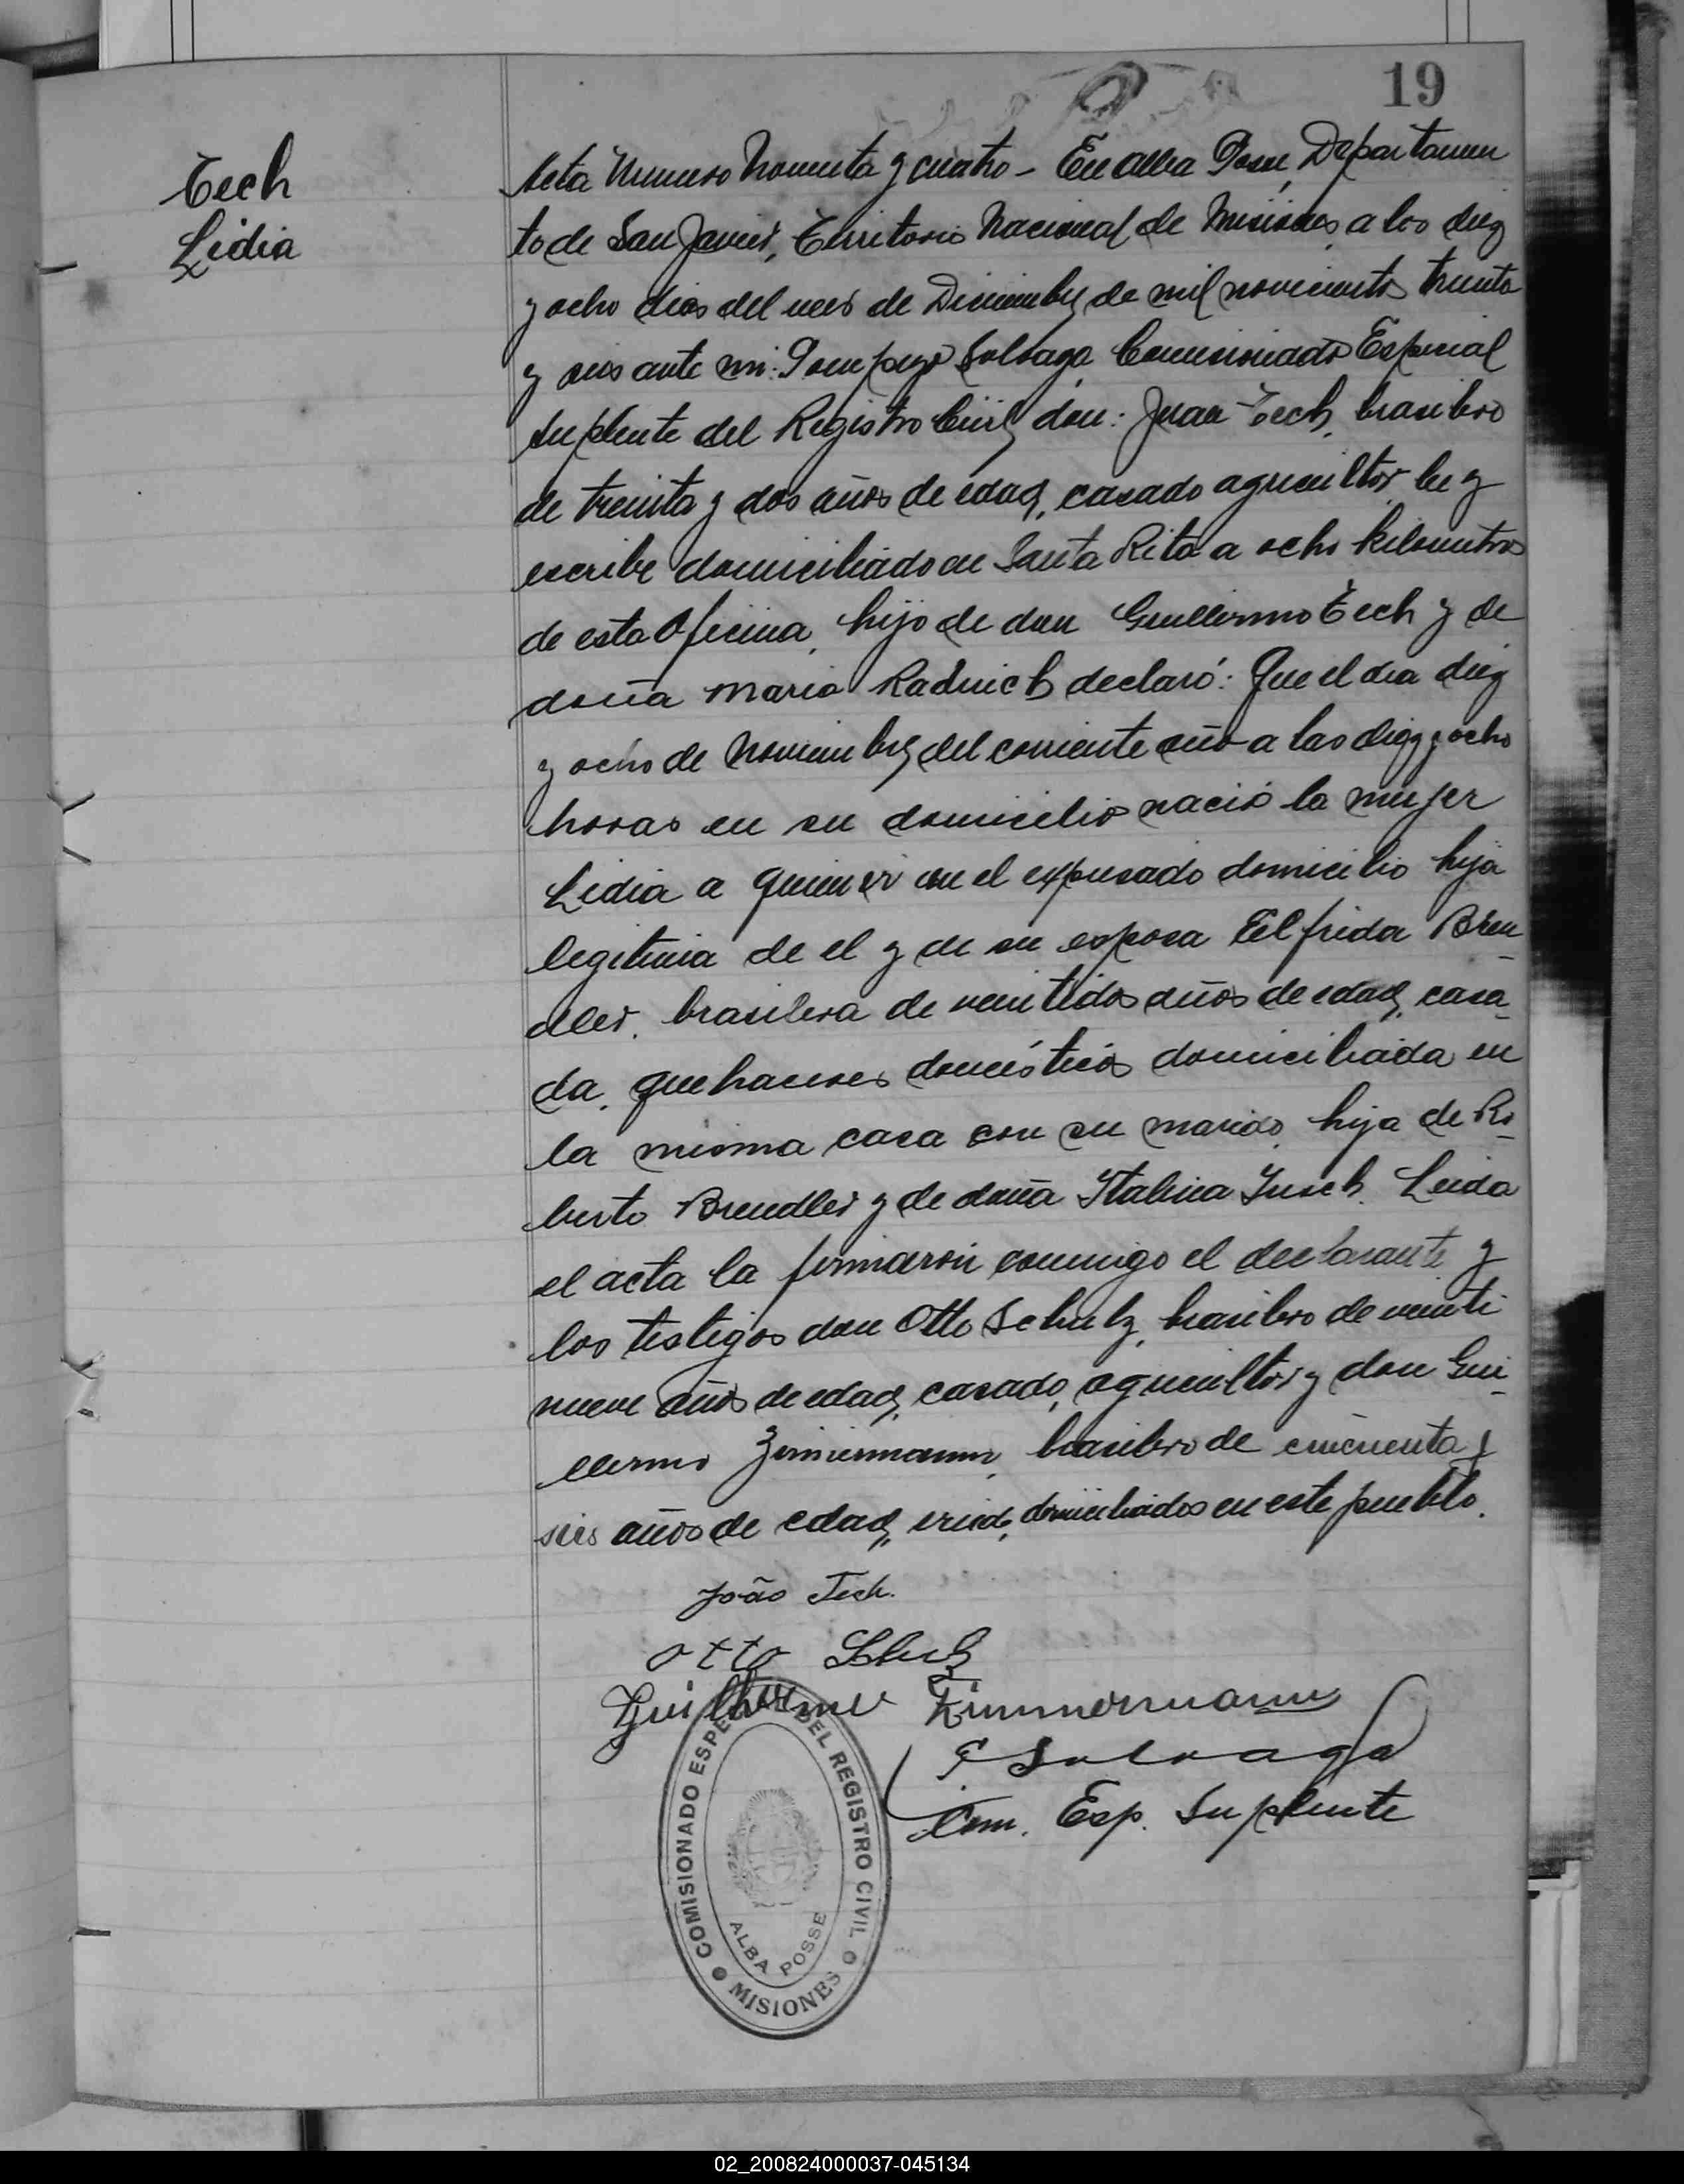 19
Tech
Lidia
Acta Numero Noventa y cuatro - En Alba Posse, Departamen
to de San Javier, Territorio Nacional de Misiones, a los diez
y ocho dias del mes de Diciembre de mil novecientos treinta
y seis ante mi: Pompeyo Solvaga Comisionado Especial
suplente del Registro Civil, don: Juan Tech, brasilero
de treinta y dos años de edad, casado agricultor lee y
escribe domiciliado en Santa Rita a ocho kilometros
de esta Oficina, hijo de don Guillermo Tech y de
doña Maria Radnich declaró: Que el dia diez
y ocho de Noviembre del corriente año a las diez y ocho
horas en su domicilio nació la mujer
Lidia a quien vi en el expresado domicilio hija
legitima de el y de su esposa Elfrida Bren
dler. brasilera de veintidos años de edad, casa-
da, quehaceres domésticos domiciliada en
la misma casa con su marido, hija de Ro-
berto Brendler y de doña Italina Jusch. Leida
el acta la firmaron conmigo el declarante y
los testigos don Otto Schulz, brasilero de veinti
nueve años de edad, casado, agricultor y don Gui-
llermo Zimmermann, brasilero de cincuenta y
seis años de edad, domiciliados en este pueblo.
João Tech.
Otto
Guilherme Zimmermann
P Solvaga
Com. Esp. Suplente
COMISIONADO ESPECIAL DEL REGISTRO CIVIL
ALBA POSSE
MISIONES
02_200824000037-045134